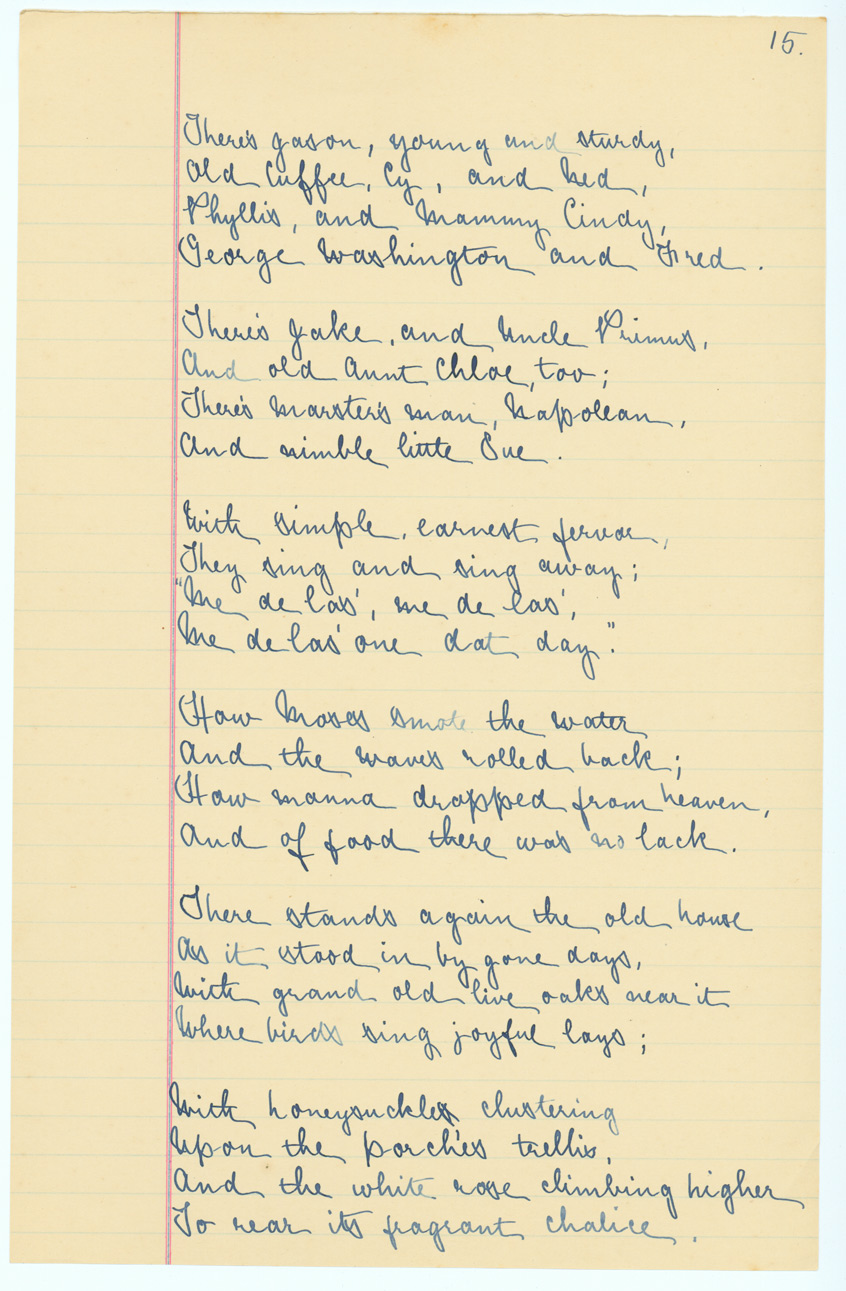 15.
There's Jason, young and sturdy,
Old Cuffee, Cy, and Ned,
Phyllis, and Mammy Cindy,
George Washington and Fred.
There's Jake, and Uncle Primus,
And old Aunt Chloe, too;
There's Marster's man, Napolean,
And nimble little Sue.
With simple, earnest fervor,
They sing and sing away;
"Me de las', me de las',
Me de las' one dat day."
How Moses smote the water
And the waves rolled back;
How manna dropped from heaven,
And of food there was no lack.
There stands again the old house
As it stood in by gone days,
With grand old live oaks near it
Where birds sing joyful lays;
With honeysuckles clustering
Upon the porch's trellis,
And the white rose climbing higher
To rear its fragrant chalice.